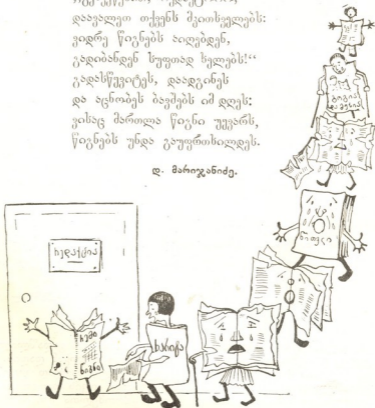 დაავალეთ თქვენს მკითხველებს:
ვიდრე წიგნებს აიღებდენ,
გადიბანდენ სუფთად ხელებს!“
გადასწყვიტეს, დაადგინეს
და აცნობეს ბავშვებს იმ დღეს:
ვისაც მართლა წიგნი უყვარს,
წიგნებს უნდა გაუფრთხილდეს.
დ. მარიჯანიძე.
რედაქცია
ჩემი
წიგნი